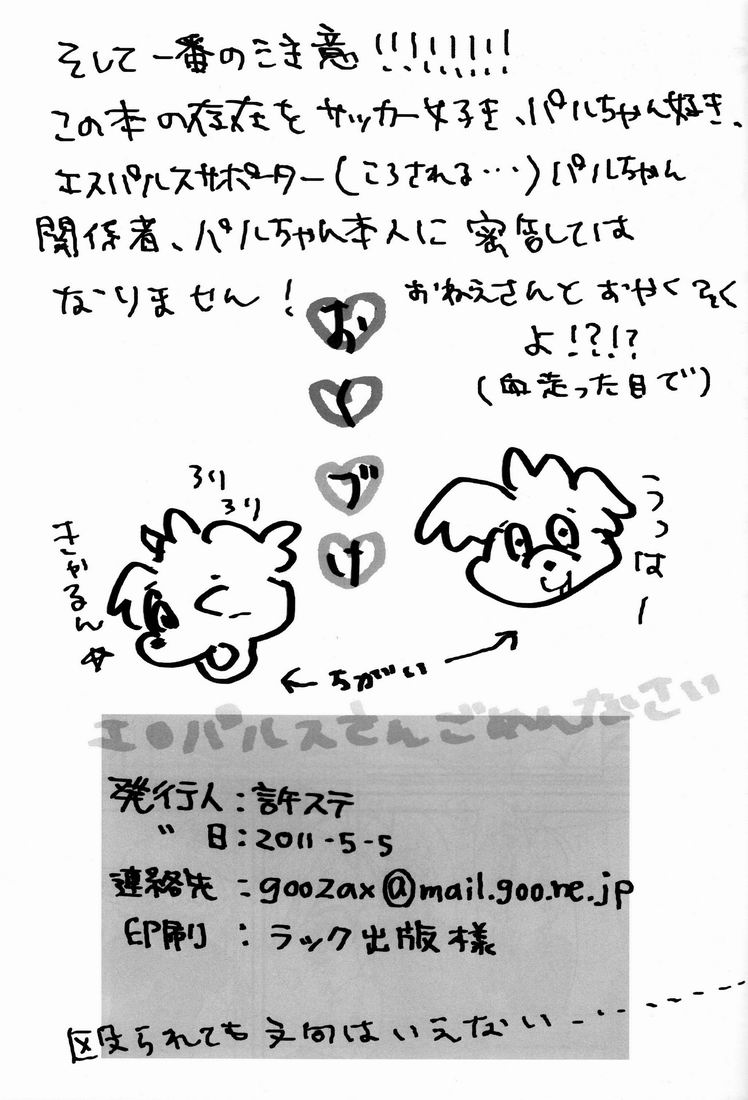 そして一番のご注意!!!!!!!!
この本の存在をサッカー好き、パルちゃん好き、
エスパルスサポーター(ころされる…)パルちゃん
関係者、パルちゃん本人に密告しては
なりません!
おねえさんとおやくそく
よ!?!?
(血走った目で)
おくづけ
ろり
ろり
きゃるん☆
うっはー
←ちがい→
エ●パルスさんごめんなさい
発行人:許ステ
〃 日:2011-5-5
連絡先:goozax@mail.goo.ne.jp
印刷:ラック出版様
殴られても文句はいえない…………